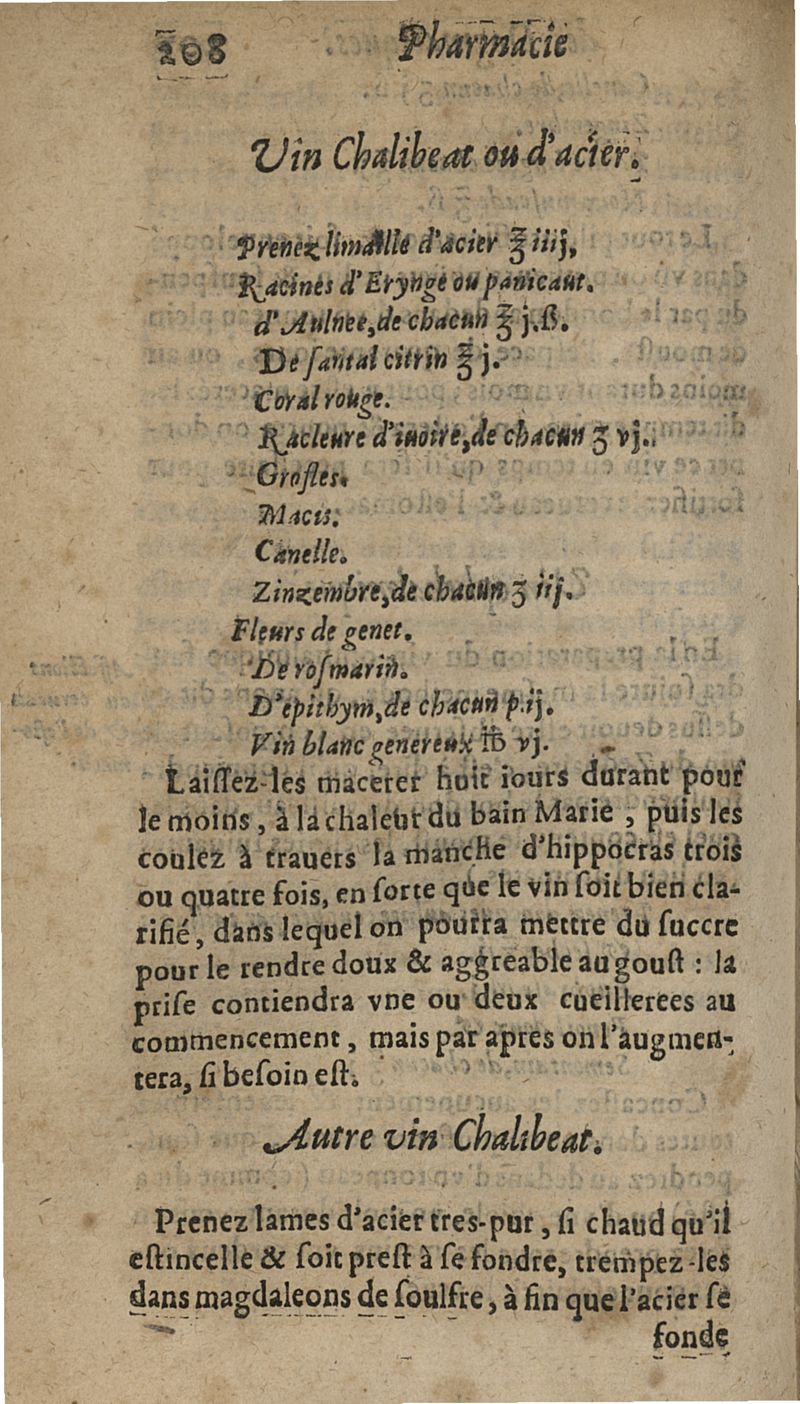 208 Pharmacie
Vin Chalibeat ou d'acier.
Prenez limaille d'acier ℥ iiij,
Racines d'Erynge ou panicaut.
d'Aulnee, de chacun ℥ j.ß.
De ſantal citrin ℥ j.
Coral rouge.
Racleure d'iuoire, de chacun ʒ vj.
Grofles.
Macis.
Canelle.
Zinzembre, de chacun ʒ iij.
Fleurs de genet.
De roſmarin.
D'epithym, de chacun p.ij.
Vin blanc genereux ℔ vj.
Laiſſez-les macerer huit iours durant pour
le moins, à la chaleur du bain Marie, puis les
coulez à trauers la manche d'hippocras trois
ou quatre fois, en ſorte que le vin ſoit bien cla-
rifié, dans lequel on pourra mettre du ſuccre
pour le rendre doux & aggreable au gouſt : la
priſe contiendra vne ou deux cueillerees au
commencement, mais par apres on l'augmen-
tera, ſi beſoin eſt.
Autre vin Chalibeat.
Prenez lames d'acier tres-pur, ſi chaud qu'il
eſtincelle & ſoit preſt à ſe fondre, trempez-les
dans magdaleons de ſoulfre, à fin que l'acier ſe
fonde